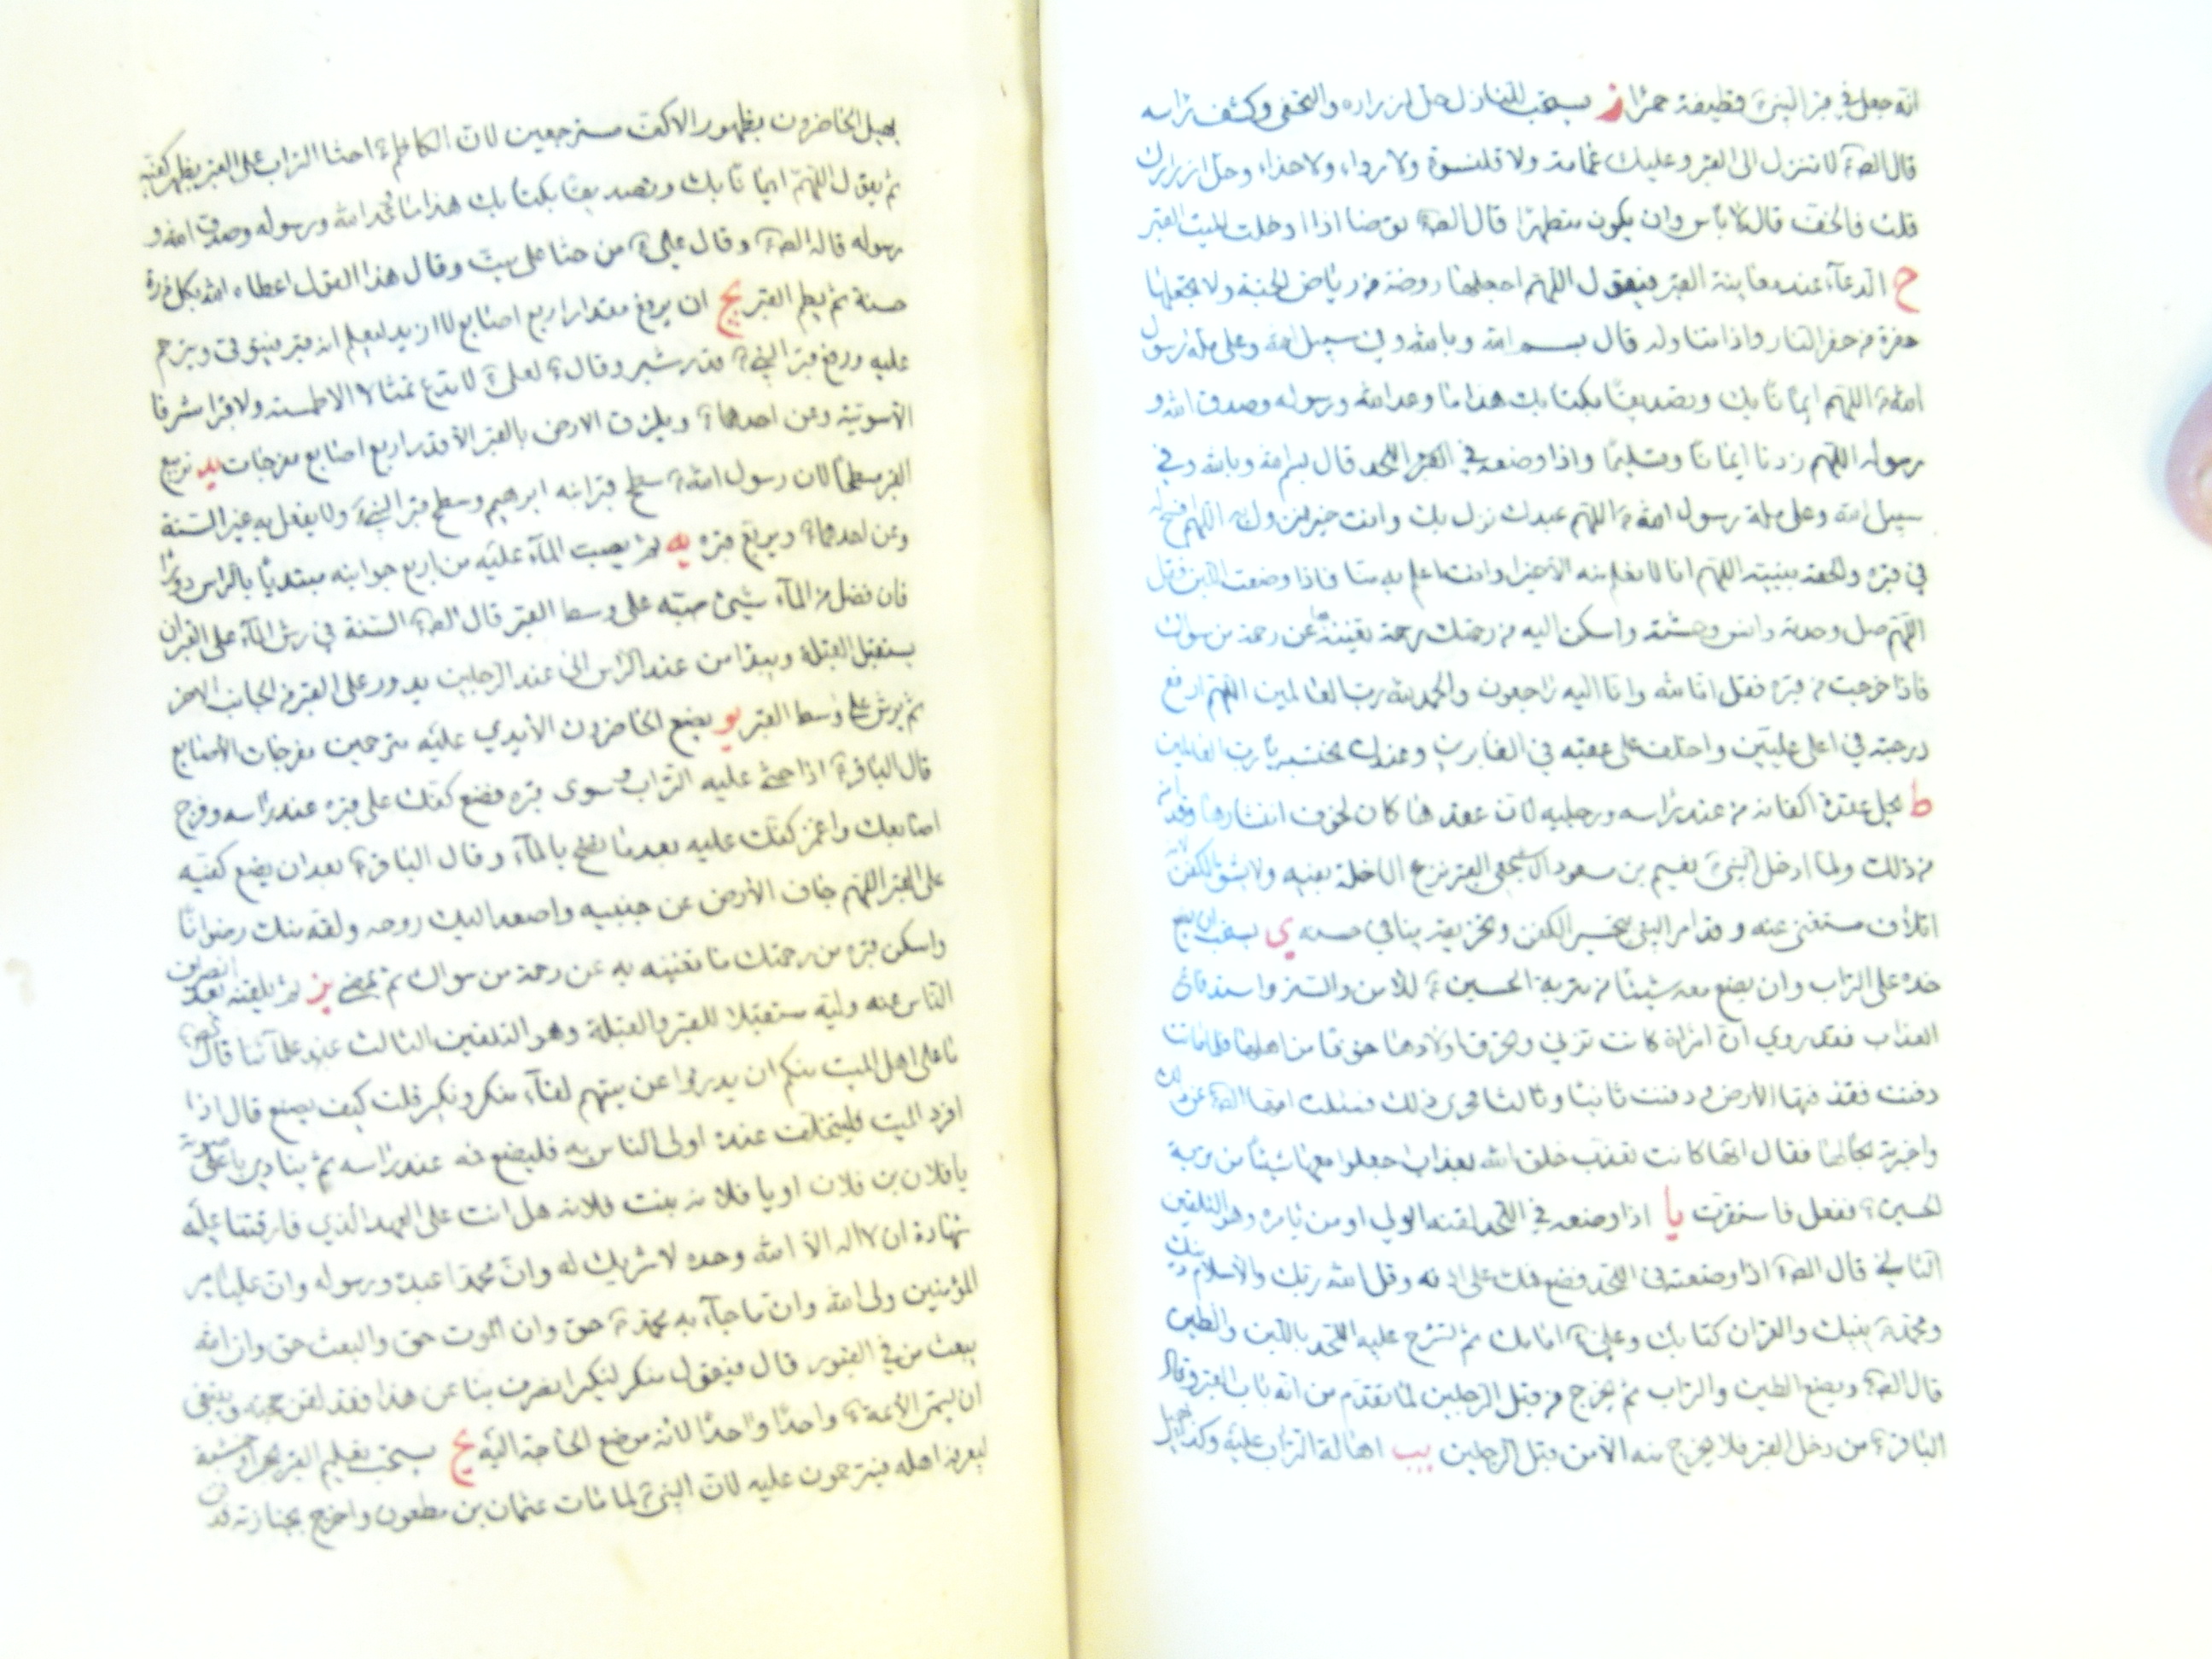 انه جعل في قبر النبي ؐ قطيفة حمرا ز يستحب للنازل حل ازراره والتحفى وكشف راسه
قال الصؑ لا تنزل الى القبر وعليك عمامة ولا قلنسوة ولا رداء ولا حذاء وحل ازرارك
قلت فالخف قال لا باس وان يكون متطهرا قال الصؑ توضا اذا ادخلت الميت القبر
ح الدعاء عند معاينة القبر فيقول اللهم اجعلها روضة من رياض الجنة ولا تجعلها
حفرة من حفر النار واذا تناوله قال بسم الله وبالله وفي سبيل الله وعلى ملة رسول
الله ؐ اللهم ايمانا بك وتصديقا بكتابك هذا ما وعد الله ورسوله وصدق الله و
رسوله اللهم زدنا ايمانا وتسليما واذا وضعه في اللحد قال بسم الله وبالله وفي
سبيل الله وعلى ملة رسول الله ؐ اللهم عبدك نزل بك وانت خير منزول به اللهم افسح له
في قبره والحقه بنبيه اللهم انا لا نعلم منه الا خيرا وانت اعلم به منا فاذا وضعت اللبن فقل
اللهم صل وحدته وانس وحشته واسكن اليه من رحمتك رحمة تغنيه بها عن رحمة من سواك
فاذا خرجت من قبره فقل انا لله وانا اليه راجعون والحمد لله رب العالمين اللهم ارفع
درجته في اعلى عليين واخلف على عقبه في الغابرين وعندك نحتسبه يا رب العالمين
ط يحل عقدة اكفانه من عند راسه ورجليه لان عقدها كان لخوف انتشارها وقد امن
من ذلك ولما ادخل النبي ؐ نعيم بن مسعود الاشجعي القبر نزع الاخلة بفيه ولا يشق الكفن لانه
اتلاف مستغنى عنه وقد امر النبي بتحسين الكفن وتخريقه ينافي حسنه ي يستحب ان يضع
خده على التراب وان يضع معه شيئا من تربة الحسين ؑ للامن والستر واستدفاع
العذاب فقد روي ان امراة كانت تزني وتحرق اولادها خوفا من اهلها فلما ماتت
دفنت فقذفتها الارض ودفنت ثانيا وثالثا فجرى ذلك فسالت امها الصؑ عن ذلك
واخبرته بحالها فقال انها كانت تعذب خلق الله بعذاب اجعلوا معها شيئا من تربة
الحسين ؑ ففعل فاستقرت يا اذا وضعه في اللحد لقنه الولي او من يامره وهو التلقين
الثاني قال الصؑ اذا وضعته في اللحد فضع فمك على اذنه وقل الله ربك والاسلام دينك
ومحمد ؐ نبيك والقران كتابك وعلي ؑ امامك ثم تشرج عليه اللحد باللبن والطين
قال الصؑ ويضع الطين والتراب ثم يخرج من قبل الرجلين لما تقدم من انه باب القبر وقال
الباقر ؑ من دخل القبر فلا يخرج منه الا من قبل الرجلين يب اهالة التراب عليه وكذا
يهيل الحاضرون بظهور الاكف مسترجعين لان الكاظم ؑ احثا التراب على القبر بظهر كفيه
ثم يقول اللهم ايمانا بك وتصديقا بكتابك هذا ما وعد الله ورسوله وصدق الله و
رسوله قاله الصؑ وقال علي ؑ من حثا على ميت وقال هذا القول اعطاه الله بكل ذرة
حسنة ثم يطم القبر يج ان يرفع مقدار اربع اصابع لا ازيد ليعلم انه قبر فيتوقى ويترحم
عليه ورفع قبر النبي ؐ قدر شبر وقال ؐ لعلي ؑ لا تدع تمثالا الا طمسته ولا قبرا مشرفا
الا سويته وعن احدهما ؑ ويلزق الارض بالقبر الا قدر اربع اصابع مفرجات يد تربيع
القبر مسطحا لان رسول الله ؐ سطح قبر ابنه ابرهيم وسطح قبر النبي ؐ ولا يفعل به غير السنة
وعن احدهما ؑ ويربع قبره يه ثم يصب الماء عليه من اربع جوانبه مبتديا بالراس دورا
فان فضل من الماء شيئ صبه على وسط القبر قال الصؑ السنة في رش الماء على القبر ان
يستقبل القبلة ويبدا من عند الراس الى عند الرجلين يدور على القبر من الجانب الاخر
ثم يرش على وسط القبر يو يضع الحاضرون الايدي عليه مترحمين مفرجات الاصابع
قال الباقر ؑ اذا حثي عليه التراب وسوى قبره فضع كفك على قبره عند راسه وفرج
اصابعك واغمز كفك عليه بعد ما ينضح بالماء وقال الباقر ؑ بعد ان يضع كفيه
على القبر اللهم جاف الارض عن جنبيه واصعد اليك روحه ولقه منك رضوانا
واسكن قبره من رحمتك ما تغنيه به عن رحمة من سواك ثم تمضي يز ثم يلقنه بعد انصراف
الناس عنه وليه مستقبلا للقبر والقبلة وهو التلقين الثالث عند علمائنا قال الصؑ
ما على اهل الميت منكم ان يدرؤا عن ميتهم لقاء منكر ونكير قلت كيف يصنع قال اذا
افرد الميت فليتخلف عنده اولى الناس به فليضع فمه عند راسه ثم ينادي باعلى صوته
يا فلان بن فلان او يا فلانه بنت فلانه هل انت على العهد الذي فارقتنا عليه
شهادة ان لا اله الا الله وحده لا شريك له وان محمدا عبده ورسوله وان عليا امير
المؤمنين ولى الله وان ما جاء به محمد ؐ حق وان الموت حق والبعث حق وان الله
يبعث من في القبور قال فيقول منكر لنكير انصرف بنا عن هذا فقد لقن حجته وينبغي
ان يسمي الائمة ؑ واحدا واحدا لانه موضع الحاجة اليه يح يستحب تعليم القبر بحجر او خشبة
ليعرفه اهله فيترحمون عليه لان النبي ؐ لما مات عثمان بن مظعون واخرج بجنازته فدفن